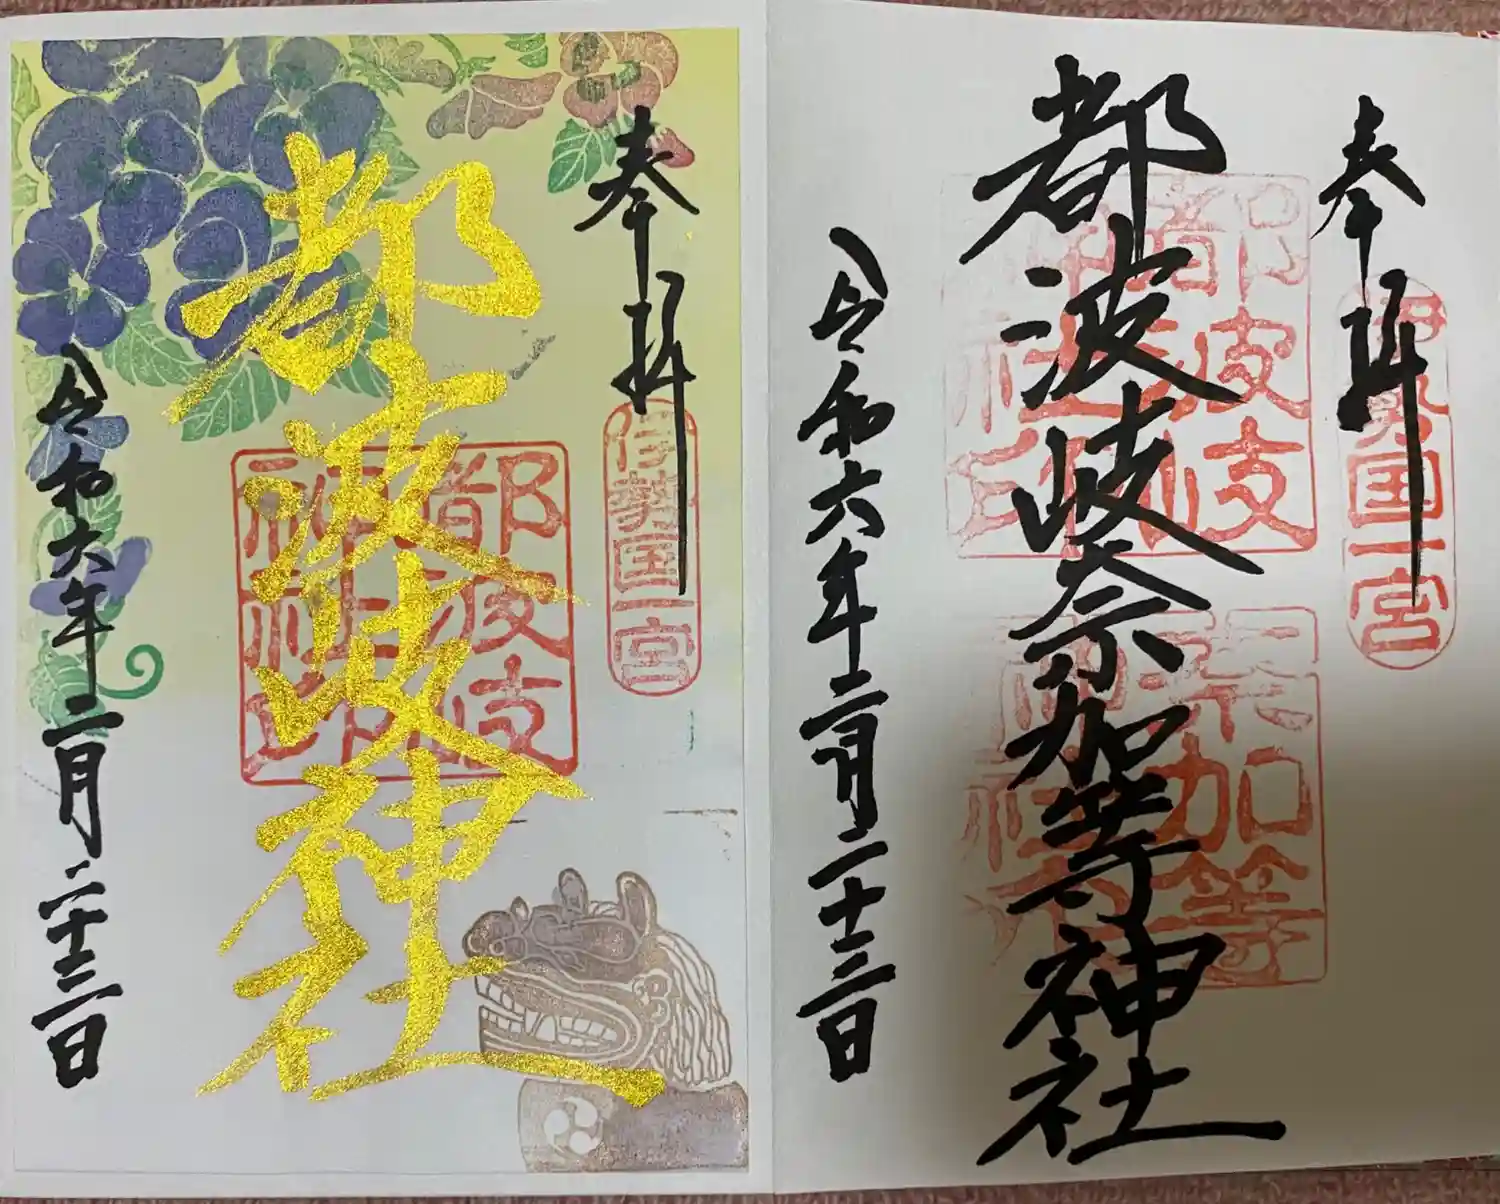 奉拝
伊勢国一宮
都波岐奈加等神社
都波岐神社印
奈加等神社
令和六年二月二十三日
奉拝
伊勢国一宮
都波岐神社
都波岐神社印
令和六年二月二十三日